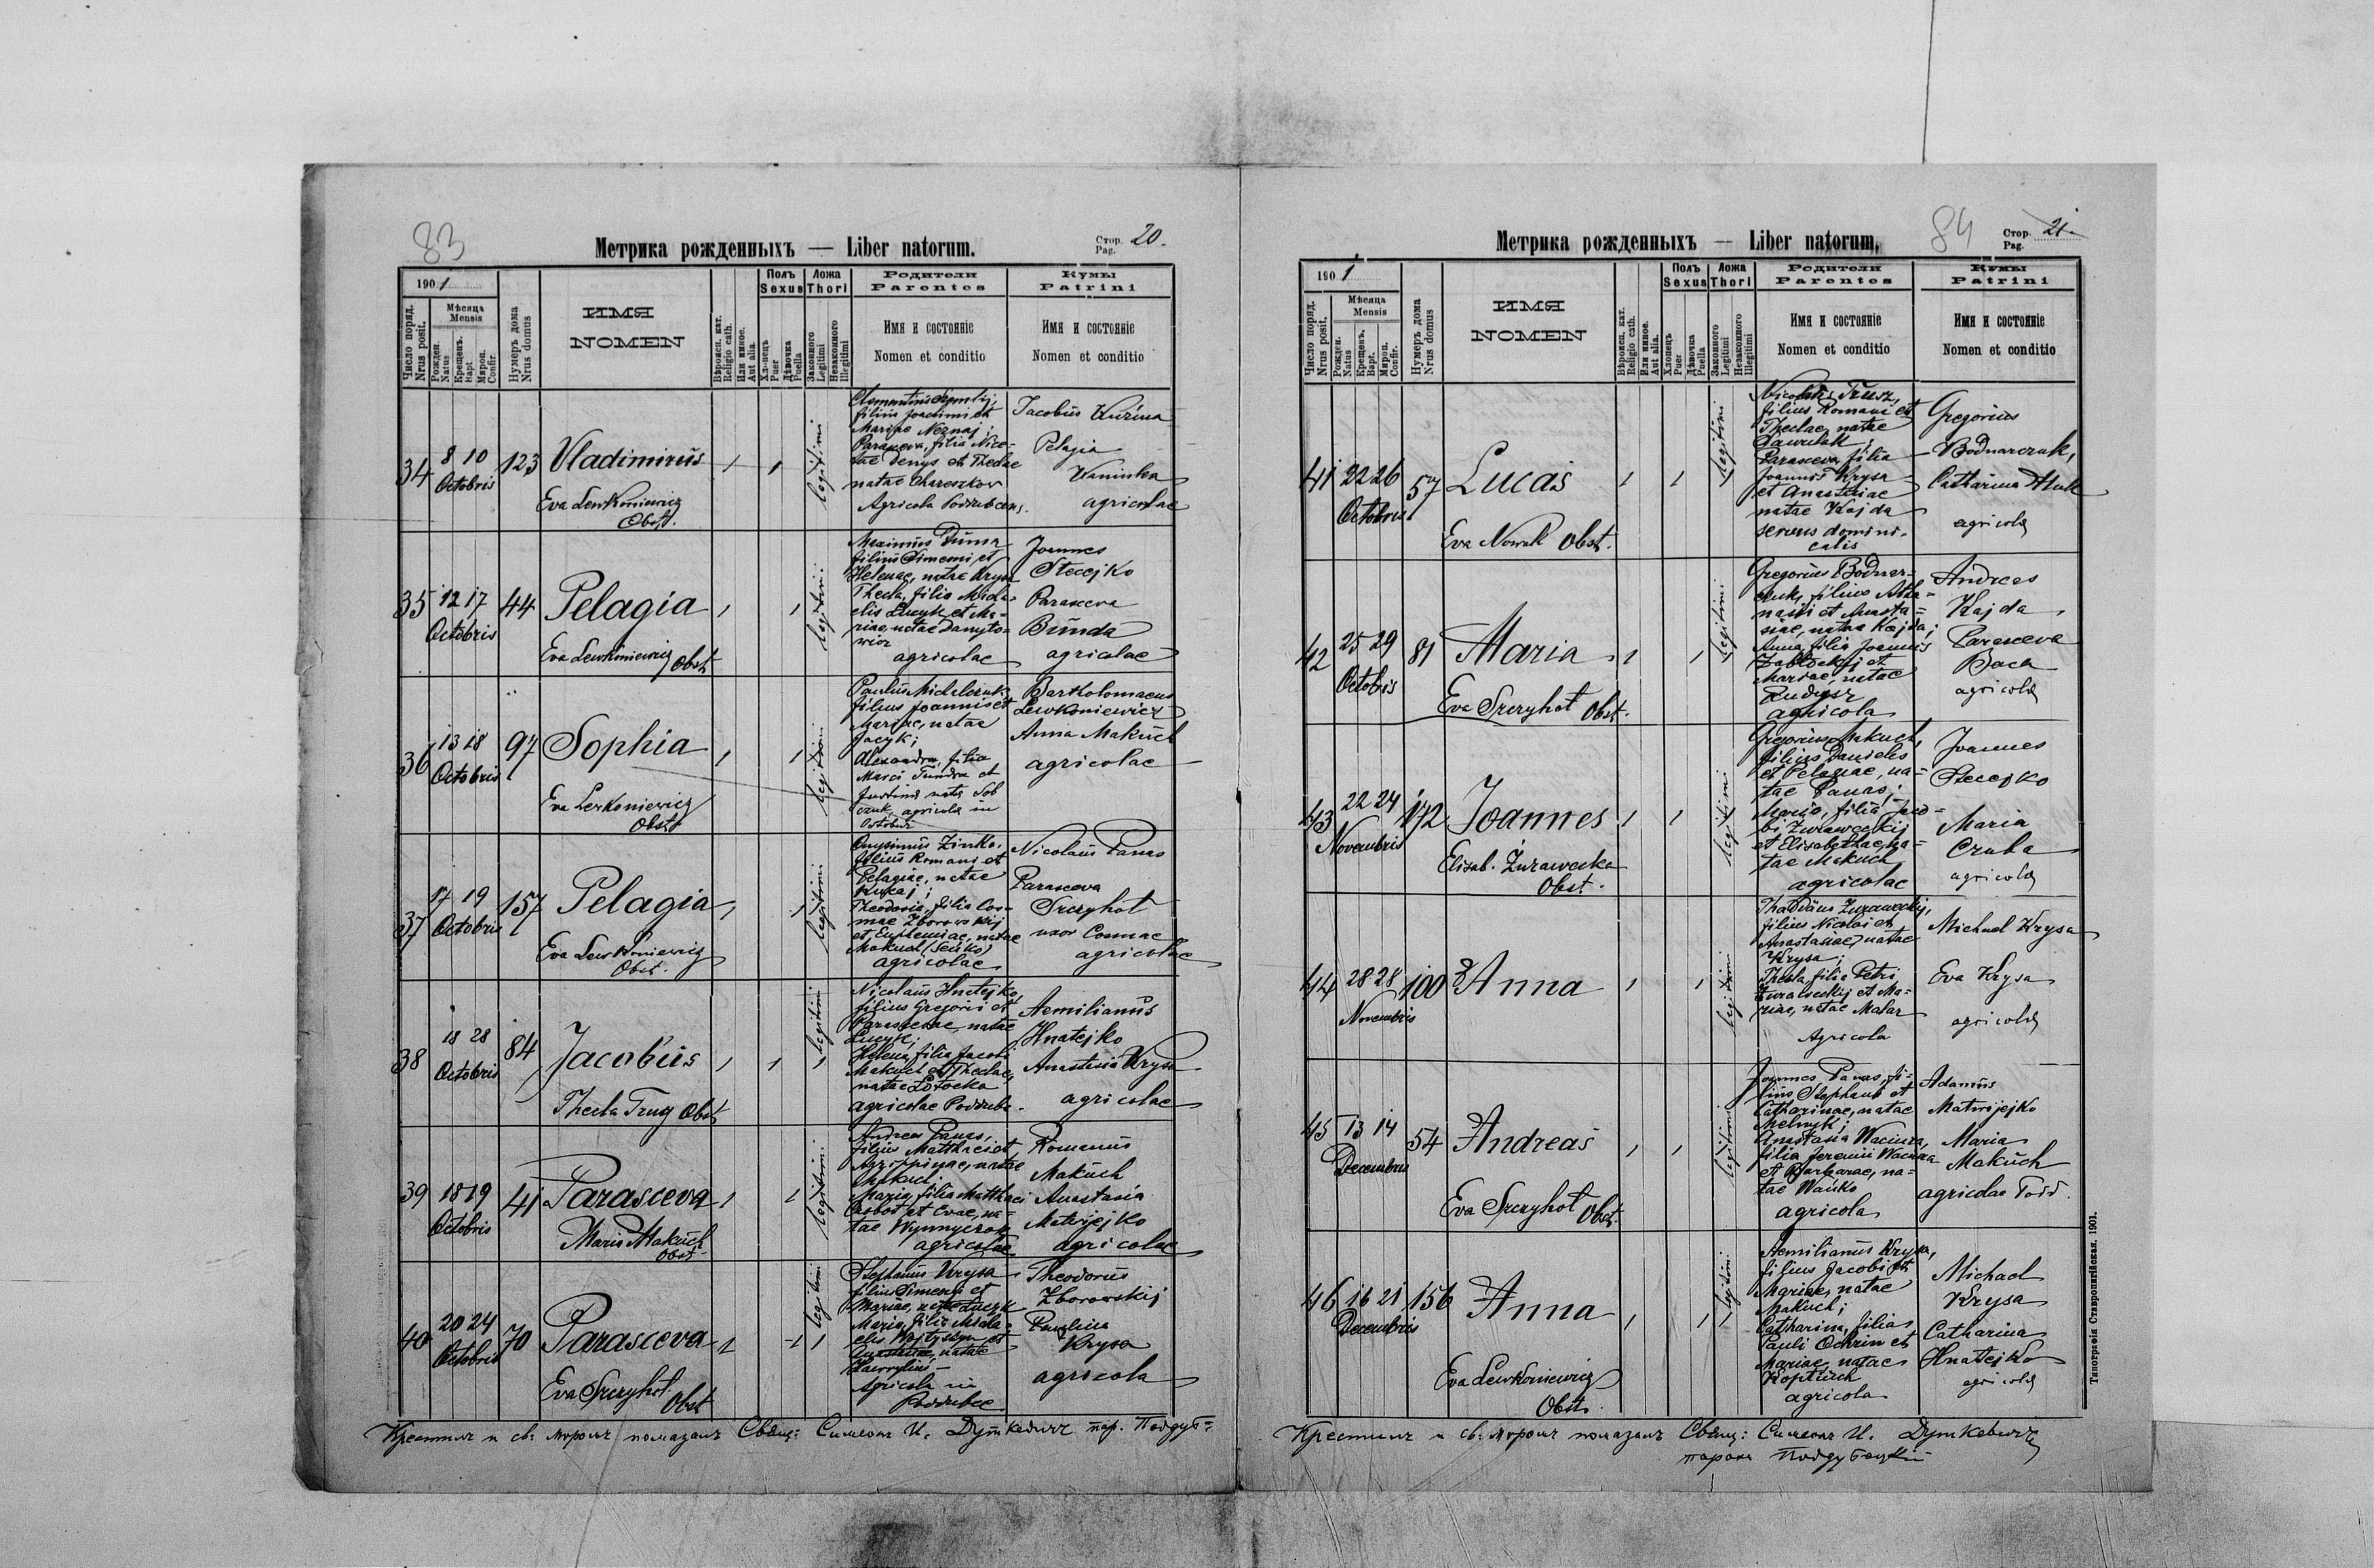 83
Метрика рожденныхъ — Liber natorum.
Стор. Pag. 20.
1901
Число поряд. Nrus posit.
Мѣсяца Mensis
Рожден. Natus
Крещенъ. Bapt
Мироп. Confir.
Нумеръ дома Nrus domus
ИМЯ
NOMEN
Вѣроисп. кат. Religio cath.
Или иное. Aut alia.
Полъ Sexus
Хлопецъ Puer
Дѣвочка Puella
Ложа Thori
Законного Legitimi
Незаконного Illegitimi
Родители
Parentes
Имя и состояніе
Nomen et conditio
Кумы
Patrini
Имя и состояніе
Nomen et conditio
34 8 10 Octobris 123 Vladimirus
Eva Lewkoniewicz
Obst.
legitimi
filius Joachimi et
Mariae Neznaj;
Parasceva, filia Nice-
tae Denys et Theclae
natae Chareszkow
Agricola
Jacobus Kuzina
Pelagia
agricolae
35 12 17 Octobris 44 Pelagia
Eva Lewkoniewicz Obst.
legitimi
Maximus Duma
filius Simeoni et
Helenae, natae Krysa
Thecla, filia Micha-
elis Lucyk et Ma-
riae, natae Danyło-
wicz
agricolae
Joannes
Stecejko
Parasceva
Bunda
agricolae
36 13 18 Octobris 97 Sophia
Eva Lewkoniewicz
Obst.
legitimi
Paulus Michalczuk
filius Joannis et
Mariae, natae
Jacyk;
Alexandra, filia
Marci Fundra et
Bartholomaeus
Lewkoniewicz
Anna Makuch
agricolae
37 17 19 Octobris 157 Pelagia
Eva Lewkoniewicz
Obst.
legitimi
Onysimus Zinko,
filius Romani et
Pelagiae, natae
Kukaj;
Theodosia, filia Cos-
mae Zborowskij
et Euphemiae, natae
Makuch (Seńko)
agricolae
Nicolaus Panas
Parasceva
Szczyhot
uxor Cosmae
agricolae
38 18 28 Octobris 84 Jacobus
Thecla Truş Obst.
legitimi
Nicolaus Hnatejko,
filius Gregorii et
Parascevae, natae
Lucyk;
Helena, filia Jacobi
Makuch et Theclae,
natae Łotocka
agricolae Poddube.
Aemilianus
Hnatejko
Anastasia Krysa
agricolae
39 18 19 Octobris 41 Parasceva
Maria Makuch
Obst.
legitimi
Andreas Panas,
filius Matthaei et
Agrippinae, natae
Makuch;
Maria, filia Matthaei
et Evae, na-
tae Wynnyczok
agricolae
Romanus
Makuch
Anastasia
Matwijejko
agricolae
40 20 24 Octobris 70 Parasceva
Eva Szczyhot.
Obst
legitimi
Stephanus Krysa
filius Simeonis et
Mariae, natae Lucyk
Maria, filia Micha-
elis
natae
Agricola in
Poddubce
Theodorus
Zborowskij
Paulina
Krysa
agricola
Крестилъ и св. мѵромъ помазалъ Свящ: Симеонъ И. Дуткевичъ пар. Поддуб-
84
Метрика рожденныхъ — Liber natorum.
Стор. Pag. 21
1901
Число поряд. Nrus posit.
Мѣсяца Mensis
Рожден. Natus
Крещенъ. Bapt.
Мироп. Confir.
Нумеръ дома Nrus domus
ИМЯ
NOMEN
Вѣроисп. кат. Religio cath.
Или иное. Aut alia.
Полъ Sexus
Хлопецъ Puer
Дѣвочка Puella
Ложа Thori
Законного Legitimi
Незаконного Illegitimi
Родители
Parentes
Имя и состояніе
Nomen et conditio
Кумы
Patrini
Имя и состояніе
Nomen et conditio
41 22 26 Octobris 57 Lucas
Eva Nowak Obst.
legitimi
Nicolaus Trusz,
filius Romani et
Theclae, natae
Ławulak;
Parasceva, filia
Joannis Krysa
et Anastasiae
natae Kajda
servus domini-
calis
Gregorius
Bodnarczuk,
Catharina
agricolae
42 25 29 Octobris 81 Maria
Eva Szczyhot Obst.
legitimi
Gregorius Bodnar-
czuk, filius Atha-
nasii et Anasta-
siae, natae Kajda;
Anna, filia Joannis
Zabłockij et
Mariae, natae
agricola
Andreas
Kajda,
Parasceva
Baca
agricolae
43 22 24 Novembris 172 Joannes
Elisab. Żurawecka
Obst.
legitimi
Gregorius Makuch,
filius Danielis
et Pelagiae, na-
tae Panas;
Maria, filia Jaco-
bi Żuraweckij
et Elisabethae, na-
tae Makuch
agricolae
Joannes
Stecejko
Maria
Czuba
agricolae
44 28 28 Novembris 100 Anna
legitimi
Thaddäus Żuraweckij,
filius Nicolai et
Anastasiae, natae
Krysa;
Thecla, filia Petri
Żuraweckij et Ma-
riae, natae Malar
Agricola
Michael Krysa
Eva Krysa
agricolae
45 13 14 Decembris 54 Andreas
Eva Szczyhot Obst.
legitimi
Joannes Panas, fi-
lius Stephani et
Catharinae, natae
Melnyk;
Anastasia Waciura,
filia Jeremii Waciura
et Barbarae, na-
tae Wańko
agricola
Adamus
Matwijejko
Maria
Makuch
agricolae Podd.
46 16 21 Decembris 156 Anna
Eva Lewkoniewicz
Obst.
legitimi
Aemilianus Krysa,
filius Jacobi et
Mariae, natae
Makuch;
Catharina, filia
Pauli Ochrin et
Mariae, natae
agricola
Michael
Krysa
Catharina
Hnatejko
agricolae
Крестилъ и св. мѵромъ помазалъ Свящ: Симеонъ И. Дуткевичъ
парохъ Поддубецкій
Типографія Ставропигійская. 1901.